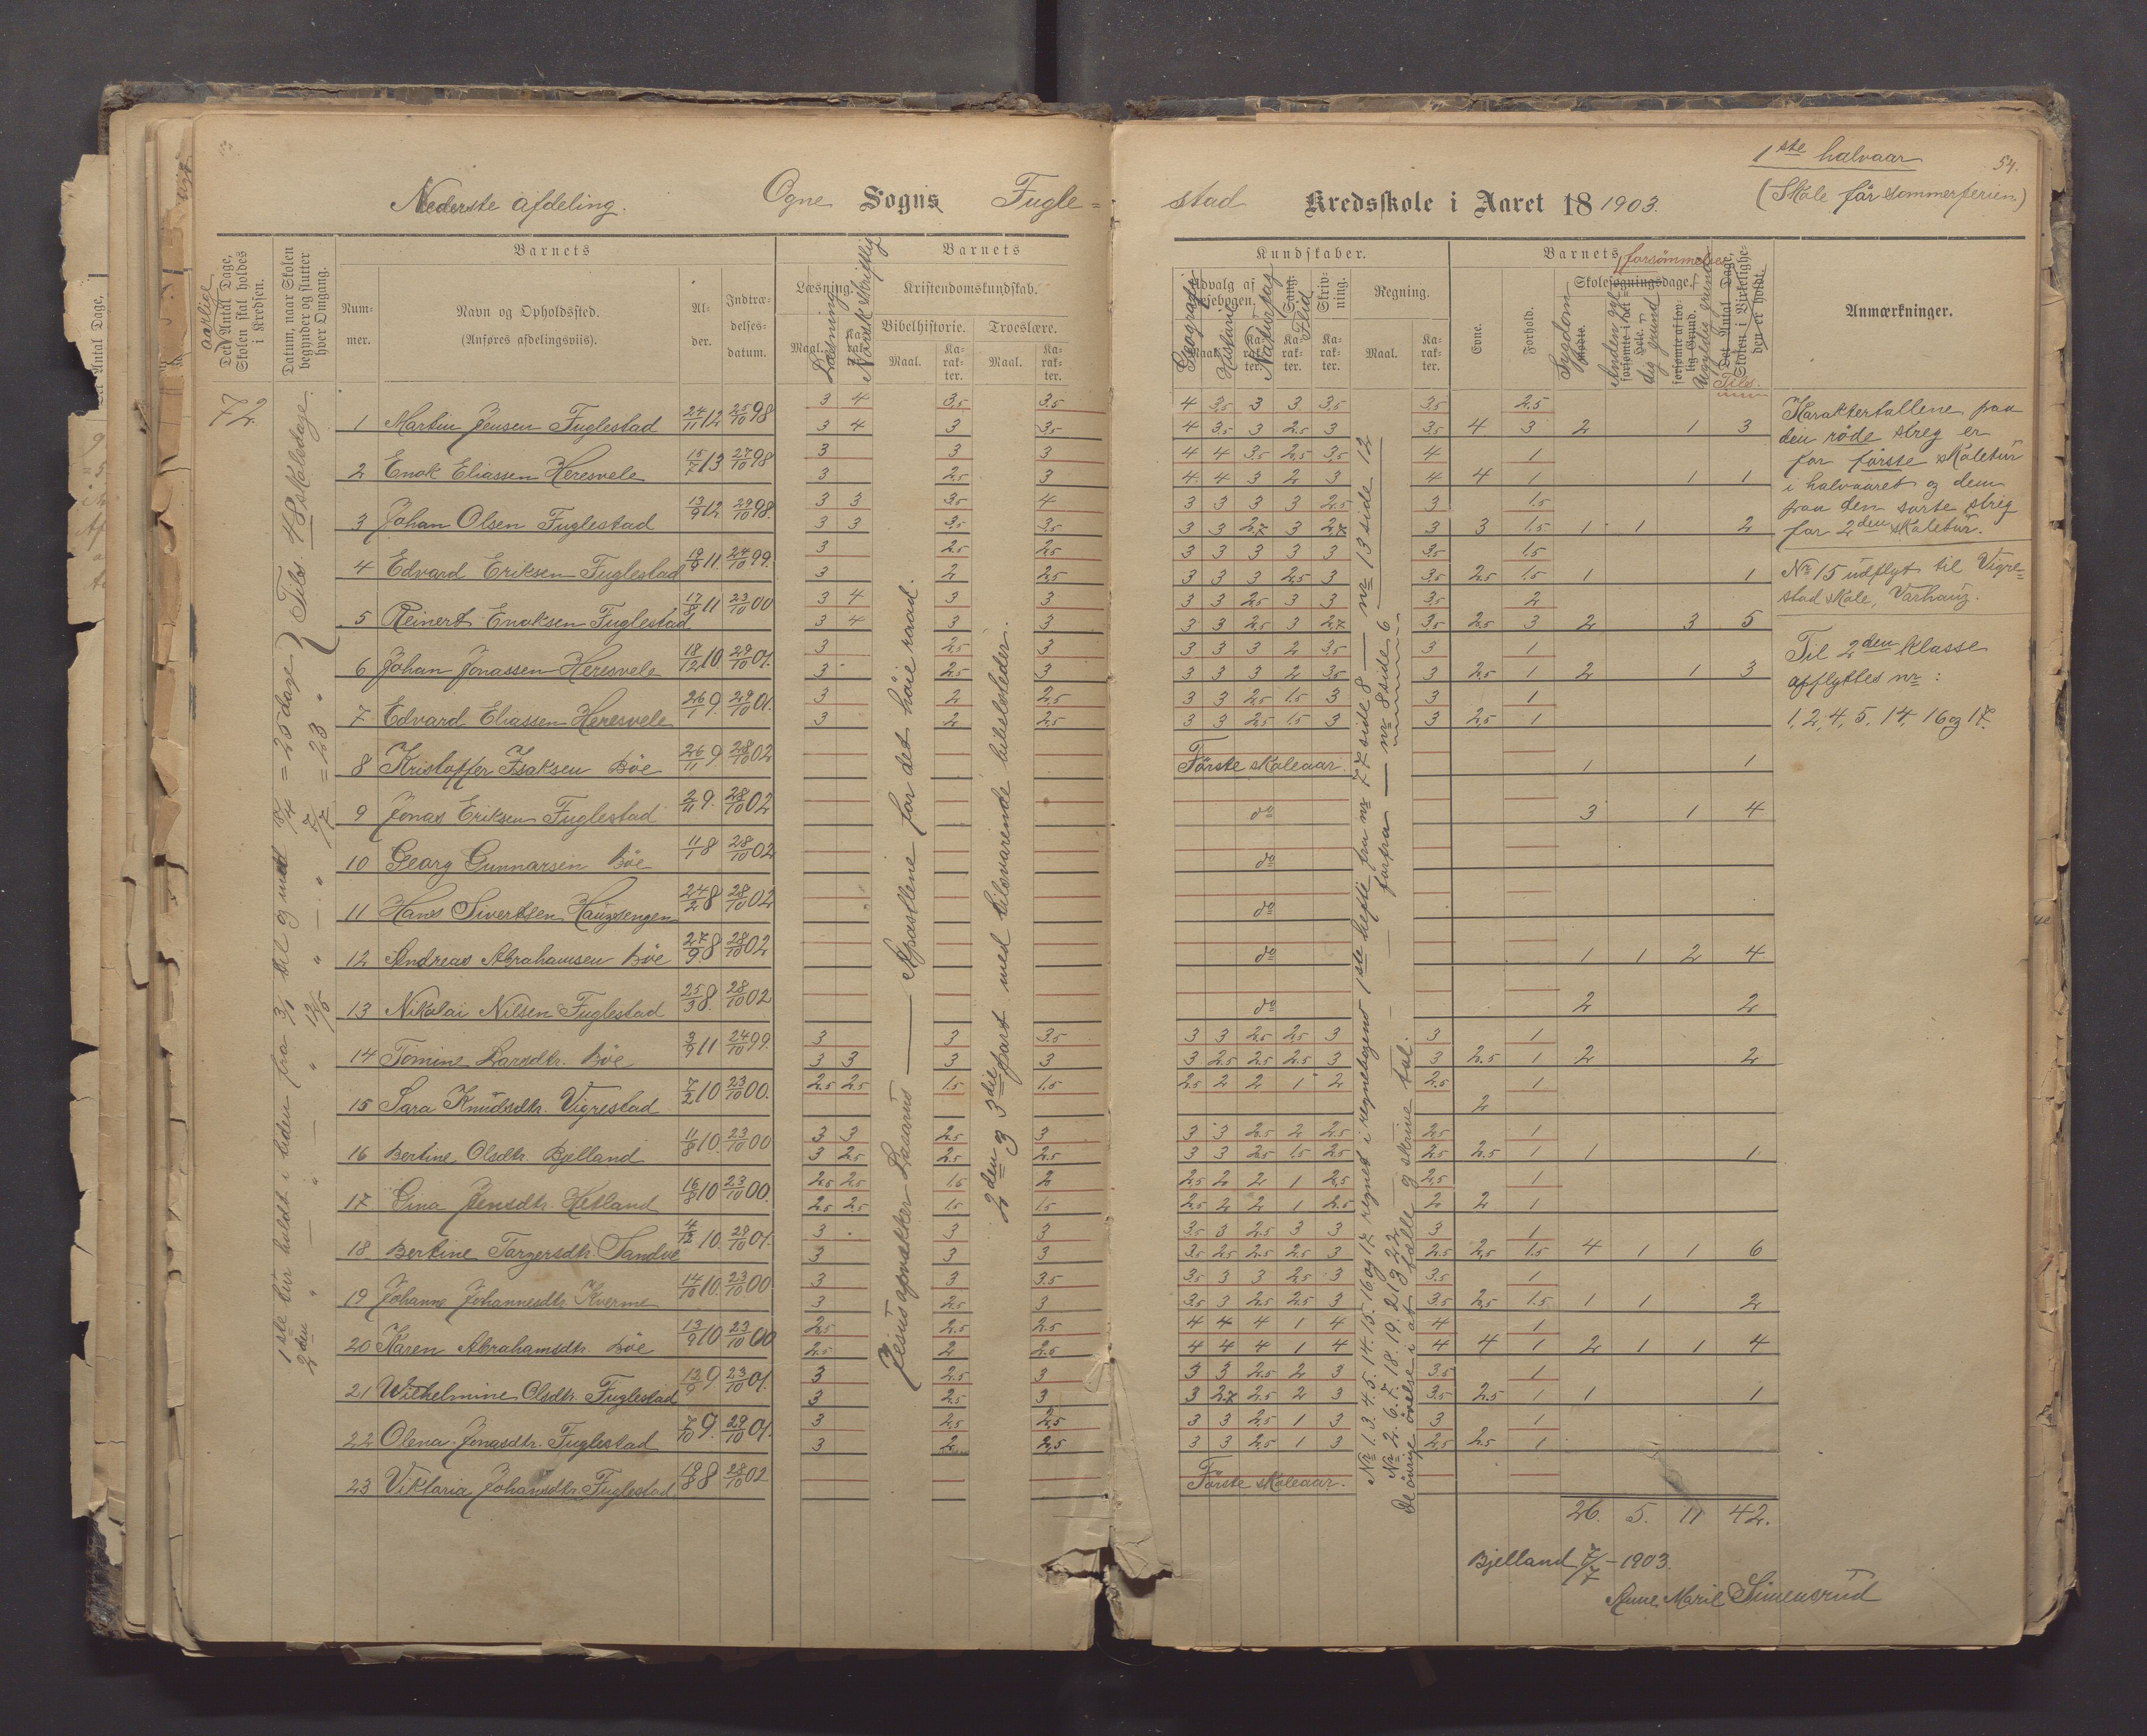 1ste halvaar
54.
Nederste afdeling. Ogne Sogns Fugle=
stad Kredsskole i Aaret 18 1903.
(Skole før sommerferien)
aarlige
Det Antal Dage, Skolen skal holdes i Kredsen.
Datum, naar Skolen begynder og slutter hver Omgang.
Barnets
Num-mer.
Navn og Opholdssted.
(Anføres afdelingsviis).
Al-der.
Indtræ-delses-datum.
Barnets
Læsning.
Læsning
Norsk skriftlig
Maal.
Ka-rak-ter.
Kristendomskundskab.
Bibelhistorie.
Troeslære.
Maal.
Ka-rak-ter.
Maal.
Ka-rak-ter.
Kundskaber.
Udvalg af Læsebogen.
Geografi
Historie
Naturfag
Sang.
Flid
Skriv-ning.
Regning.
Maal.
Ka-rak-ter.
Barnets
forsømmelser
Evne.
Forhold.
Skolesøgningsdage.
Sygdom
Anden gyldig grund
Ugyldig grund
Det Antal Dage, Skolen i Virkelighe-den er holdt.
Tils.
Anmærkninger.
72.
1ste tur holdt i tiden fra 3/1 til og med 8/4 = 25 dage
2den " — " — " 12/5 " — . " 7/7 = 23 "
Tils. 48 skoledage.
1 Martin Jensen Fuglestad 24/11 12 25/10 98
2 Enok Eliassen Heresvele 15/7 13 27/10 98
3 Johan Olsen Fuglestad 13/9 12 29/10 98.
4 Edvard Eriksen Fuglestad 19/9 11 24/10 99.
5 Reinert Enoksen Fuglestad 17/8 11 23/10 00
6 Johan Jonassen Heresvele 18/12 10 29/10 01.
7 Edvard Eliassen Heresvele 26/1 9. 29/10 01.
8 Kristoffer Isaksen Bøe 26/11 9 28/10 02
9 Jonas Eriksen Fuglestad 2/11 9. 28/10 02
10 Georg Gunnarsen Bøe 11/1 8 28/10 02
11 Hans Sivertsen Haugsengen 24/2 8 28/10 02
12 Andreas Abrahamsen Bøe 27/9 8 28/10 02
13 Nikolai Nilsen Fuglestad 25/3 8. 28/10 02
14 Tomine Larsdtr. Bøe 3/9 11 24/10 99.
15 Sara Knudsdtr. Vigrestad 7/2 10 23/10 00.
16 Bertine Olsdtr. Bjelland 11/8 10. 23/10 00
17 Gina Jensdtr. Hetland 16/8 10 23/10 00.
18 Bertine Torgersdtr. Sandve 4/12 10. 29/10 01.
19 Johanne Johannesdtr. Kverme 14/10 10. 23/10 00.
20 Karen Abrahamsdtr. Bøe 13/9 10 23/10 00
21 Wilhelmine Olsdtr. Fuglestad 12/9 9 23/10 01.
22 Olena Jonasdtr. Fuglestad 7/10 9. 29/10 01.
23 Viktoria Johansdtr. Fuglestad 19/8 8 28/10 02
Jesus opvækker Lasarus — Apostlene for det høie raad.
2den og 3die part med tilsvarende bibelsteder.
3 4 3,5 3.5 4 3,5 3 3 3,5 3,5 2.5
3 4 3 3,5 4 3,5 3 2,5 3 3,5 4 3 2 1 3
3 3 3 4 4 3,5 2,5 3,5 4 1
3 2,5 3 4 4 3 2 3 4 4 1 1 1
3 3 3,5 4 3 3 3 3 2,5 3 1.5
3 3 3,5 3,5 3 3 2,7 3 2,7 3 3 1.5 1 1 2
3 2,5 2,5 3 3 3 3 3 3,5 1.5
3 2 2,5 3 3 3 2,5 3 3,5 2.5 1.5 1 1
3 4 3 3 3 3 2,5 3 3 3,5 2
3 4 3 3 3 3 2,5 3 2,7 3,5 2,5 3 2 3 5
3 2,5 3 3 3 3 2 3,5 3 1
3 2,5 3 3 3 3 2 3,5 3 2,5 1 2 1 3
3 2 2,5 3 3 2,5 1.5 3 3 1
3 2 2,5 3 3 2,5 1.5 3 3 2,5 1
Første skoleaar. 1 1
do 3 1 4
do
do
do 1 1 2 4
do 2 2
3 3 3.5 3 3 2,5 2,5 3 3 1
3 3 3 3 3 2,5 2,5 2,5 3 3 2.5 1 2 2
2,5 2,5 1.5 1.5 2,5 2 2 1 2 2,5 1
2
3 3 2.5 3 3 3 2,5 2 2,5 2,5 1
3 2,5 2,5 2.5 3 3 2,5 1.5 2,5 2,5 2.5 1 1 1
2,5 2,5 1.5 2 2,5 2 2 1 2,5 2,5 1
2,5 2,5 1.5 1.5 2,5 2 2 1 2.5 2 2 1
3 3 3 3,5 3 2,5 3 3 3 1
3 3 3 3,5 2,5 2,5 2,5 3 2,5 2,5 1.5 4 1 1 6
3 3 3.5 3,5 3 3 2,5 3 3,5 1
3 2,5 3 3,5 3 2,5 2,5 3 3,5 2,5 1.5 1 1 2
2,5 2.5 2.5 4 4 4 1 4 4 1
2,5 2 2.5 4 4 4 1 4 4 4 1 2 1 1 4
3 2.5 3 3 3 2,5 2 3 3,5 1
3 2,5 3 3 2,7 2,5 2 3 3,5 2.5 1 1 1
3 2,5 2,5 3 3 2,5 1 3 3 1
3 2 2,5 3 3 2,5 1 3 2,5 2.5 1
Første skoleaar.
26. 5. 11 42.
No 1. 3. 4. 5. 14. 15. 16. og 17 regnet i regnebogens 1ste hefte fra nr 77 side 8 — nr 13 side 12
No 2. 6. 7. 18. 19. 21 og 22 — forfra — nr 8 side 6
De øvrige øvelse i at tælle og skrive tal.
Karaktertallene paa
den røde streg er
for første skoletur
i halvaaret og dem
paa den sorte streg
for 2den skoletur.
No 15 udflyt til Vigre=
stad skole, Varhaug.
Til 2den klasse
opflyttes nr:
1, 2, 4, 5, 14, 16 og 17.
Bjelland 7/7 – 1903.
Anne Marie Simensrud